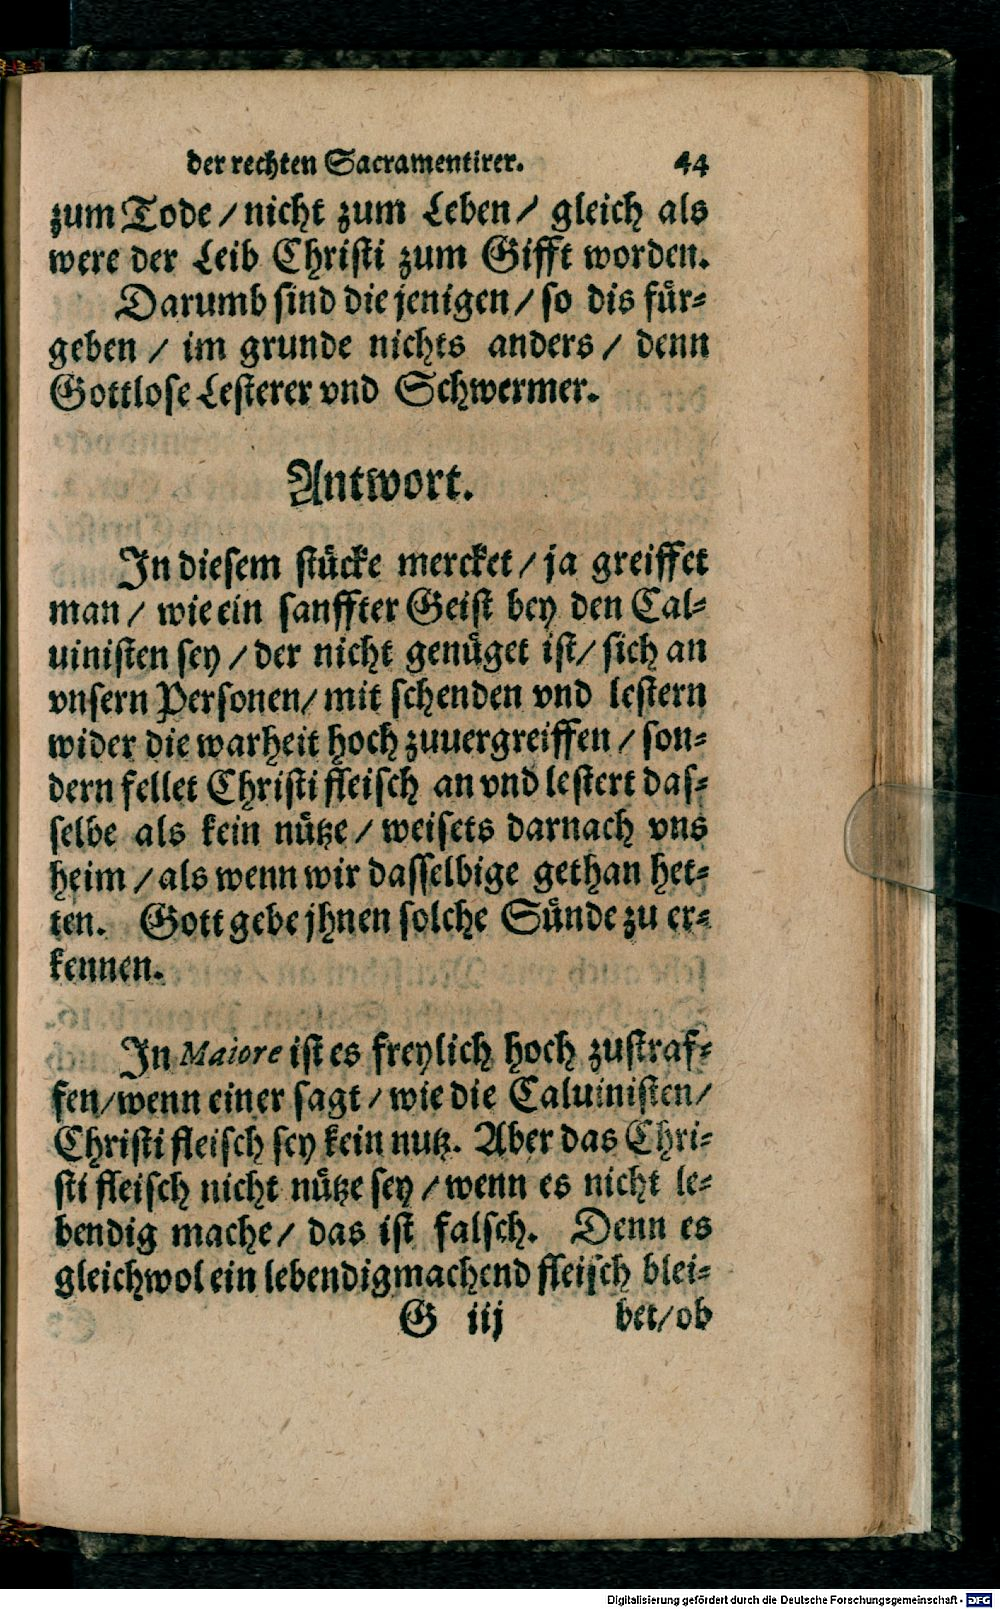 der rechten Sacramentirer. 44
zum Tode / nicht zum Leben / gleich als
were der Leib Christi zum Gifft worden.
Darumb sind die jenigen / so dis fuͤr⸗
geben / im grunde nichts anders / denn
Gottlose Lesterer vnd Schwermer.
Antwort.
In diesem stuͤcke mercket / ja greiffet
man / wie ein sanffter Geist bey den Cal⸗
uinisten sey / der nicht genuͤget ist / sich an
vnsern Personen / mit schenden vnd lestern
wider die warheit hoch zuuergreiffen / son⸗
dern fellet Christi fleisch an vnd lestert das⸗
selbe als kein nuͤtze / weisets darnach vns
heim / als wenn wir dasselbige gethan het⸗
ten. Gott gebe jhnen solche Suͤnde zu er⸗
kennen.
In Maiore ist es freylich hoch zustraf⸗
fen / wenn einer sagt / wie die Caluinisten /
Christi fleisch sey kein nutz. Aber das Chri⸗
sti fleisch nicht nuͤtze sey / wenn es nicht le⸗
bendig mache / das ist falsch. Denn es
gleichwol ein lebendigmachend fleisch blei⸗
G iij bet / ob
Digitalisierung gefördert durch die Deutsche Forschungsgemeinschaft - DFG